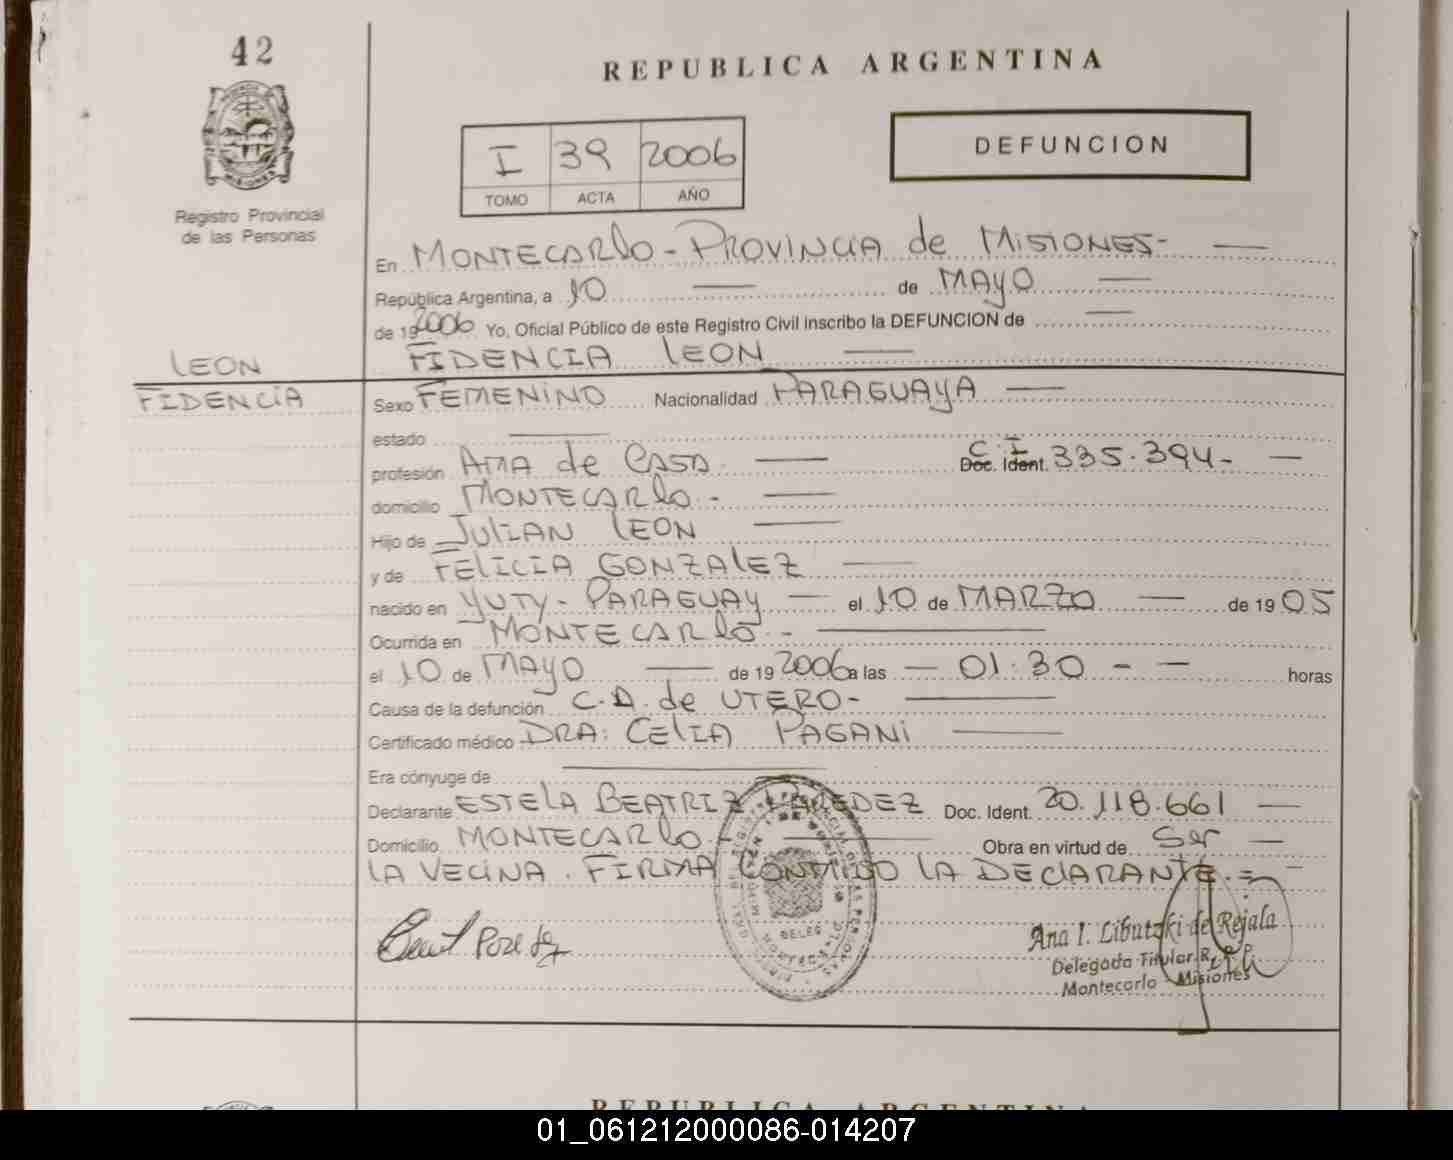 42
REPUBLICA ARGENTINA
I 39 2006
TOMO ACTA AÑO
DEFUNCION
Registro Provincial
de las Personas
En MONTECARLO - PROVINCIA de MISIONES-
República Argentina, a 10 de MAYO
de 192006 Yo, Oficial Público de este Registro Civil inscribo la DEFUNCION de
FIDENCIA LEON
LEON
FIDENCIA
Sexo FEMENINO Nacionalidad PARAGUAYA
estado
profesión AMA de CASA C. I. Doc. Ident. 335.394-
domicilio MONTECARLO -
Hijo de JULIAN LEON
y de FELICIA GONZALEZ
nacido en YUTY - PARAGUAY el 10 de MARZO de 19 05
Ocurrida en MONTECARLO -
el 10 de MAYO de 19 2006 a las 01:30 horas
Causa de la defunción C.A. de UTERO-
Certificado médico DRA: CELIA PAGANI
Era cónyuge de
Declarante ESTELA BEATRIZ PAREDEZ Doc. Ident. 20.118.661
Domicilio MONTECARLO - Obra en virtud de Ser
LA VECINA. FIRMA CONMIGO LA DECLARANTE.=
Ana I. Libutzki de Rejala
Delegada Titular R.P.P.
Montecarlo - Misiones
REPUBLICA ARGENTINA
01_061212000086-014207